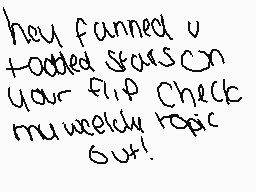 hey fanned u
+added stars on
your flip check
my weekly topic
out!